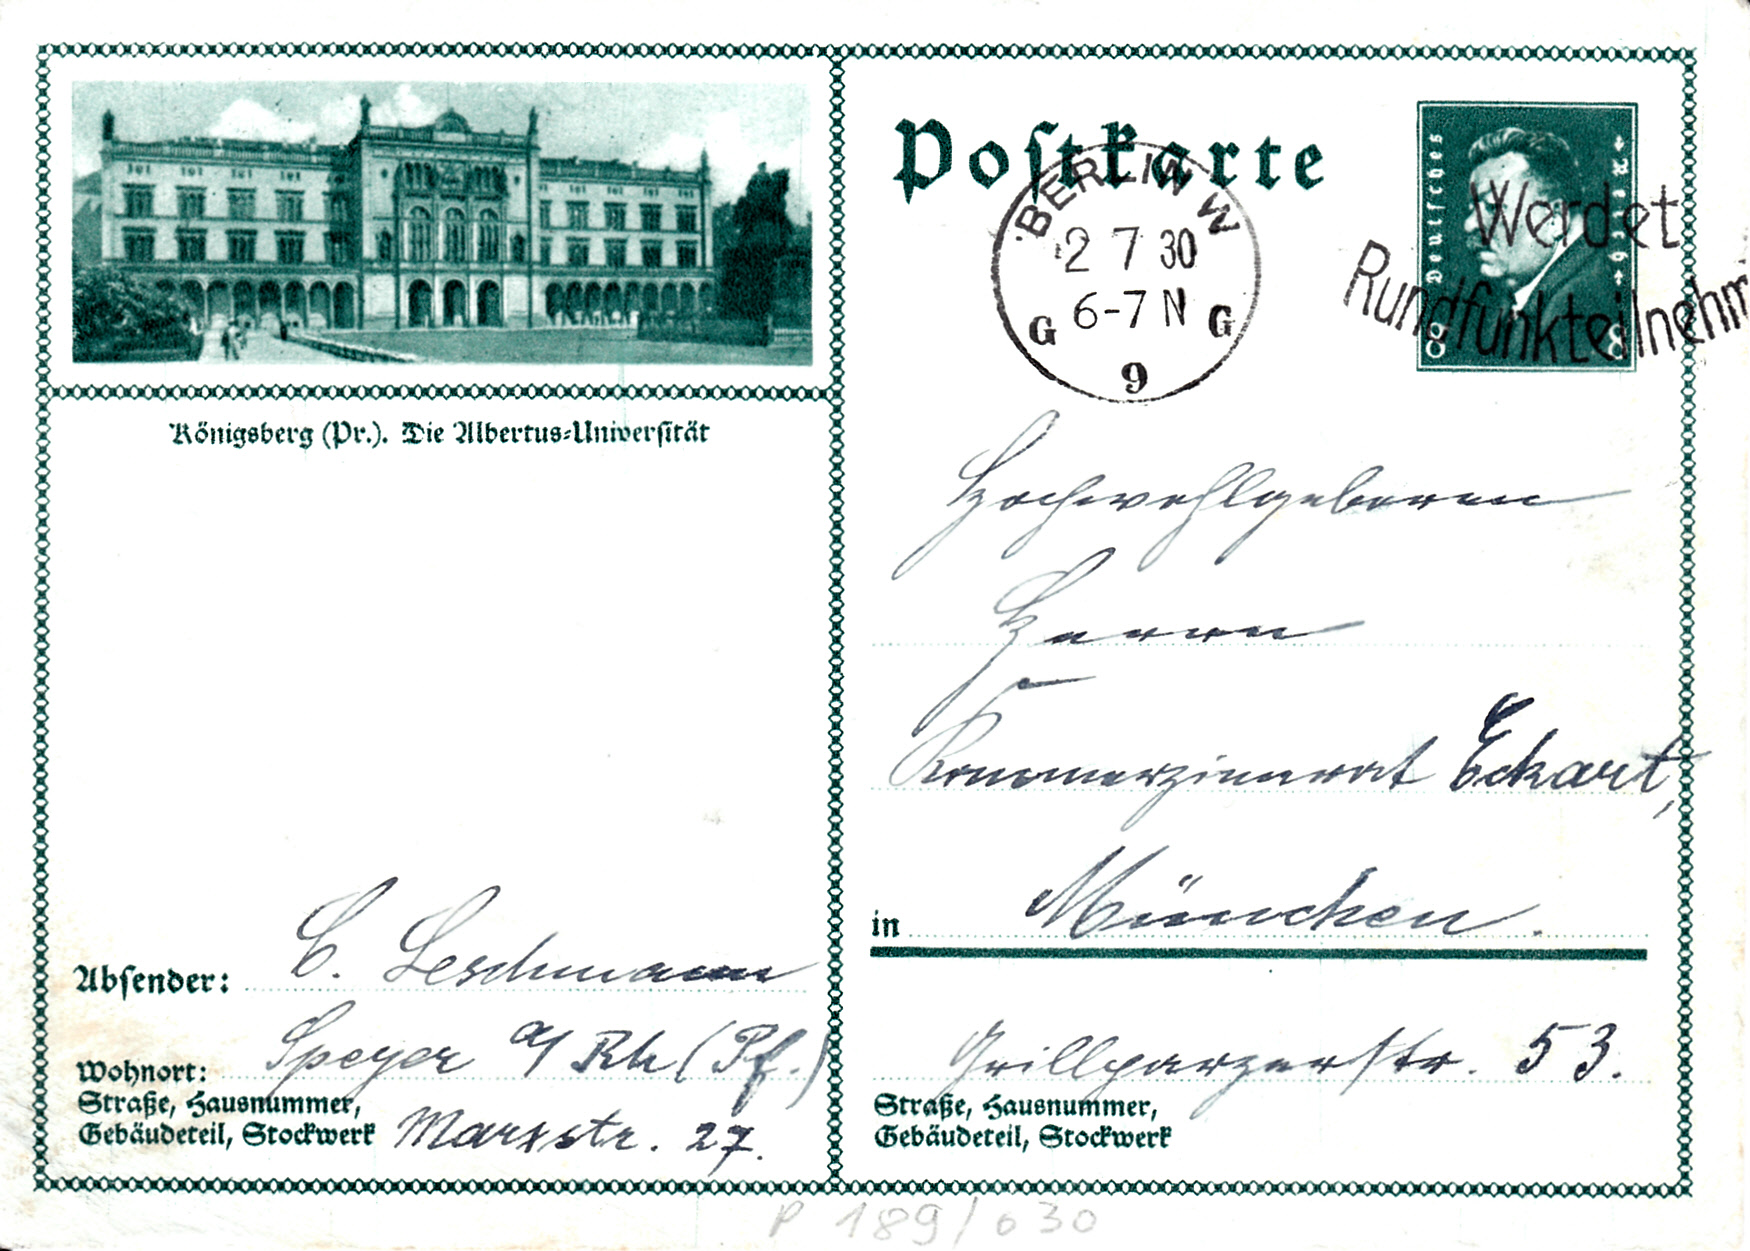 Königsberg (Pr.). Die Albertus-Universität
Absender: C. Leschmann
Wohnort: Speyer a/ Rh (Pf.)
Straße, Hausnummer,
Gebäudeteil, Stockwerk Marxstr. 27.
Postkarte
Deutsches Reich
8 8
BERLIN W
2 7 30
6-7 N
G G
9
Werdet
Rundfunkteilnehm
Hochwohlgeboren
Herrn
Kommerzienrat Eckart,
in München.
Grillparzerstr. 53.
Straße, Hausnummer,
Gebäudeteil, Stockwerk
P 189/030